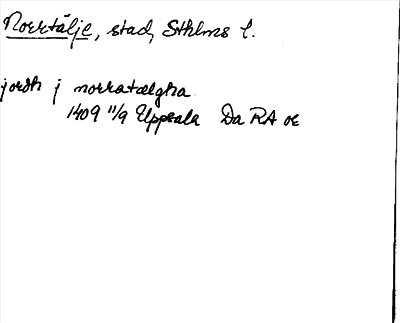 Norrtälje, stad, Sthlms l.
jordh j norratælgha
1409 11/9 Uppsala Da RA oe